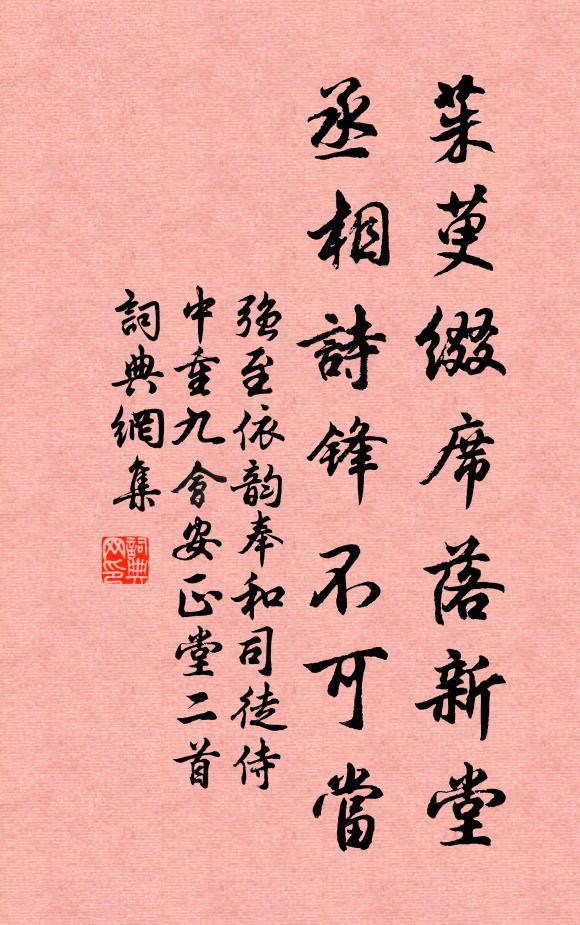 茱萸綴席落新堂
丞相詩鋒不可當
強至依韵奉和司徒侍
中重九會安正堂二首
詞典網集
詞典
网印